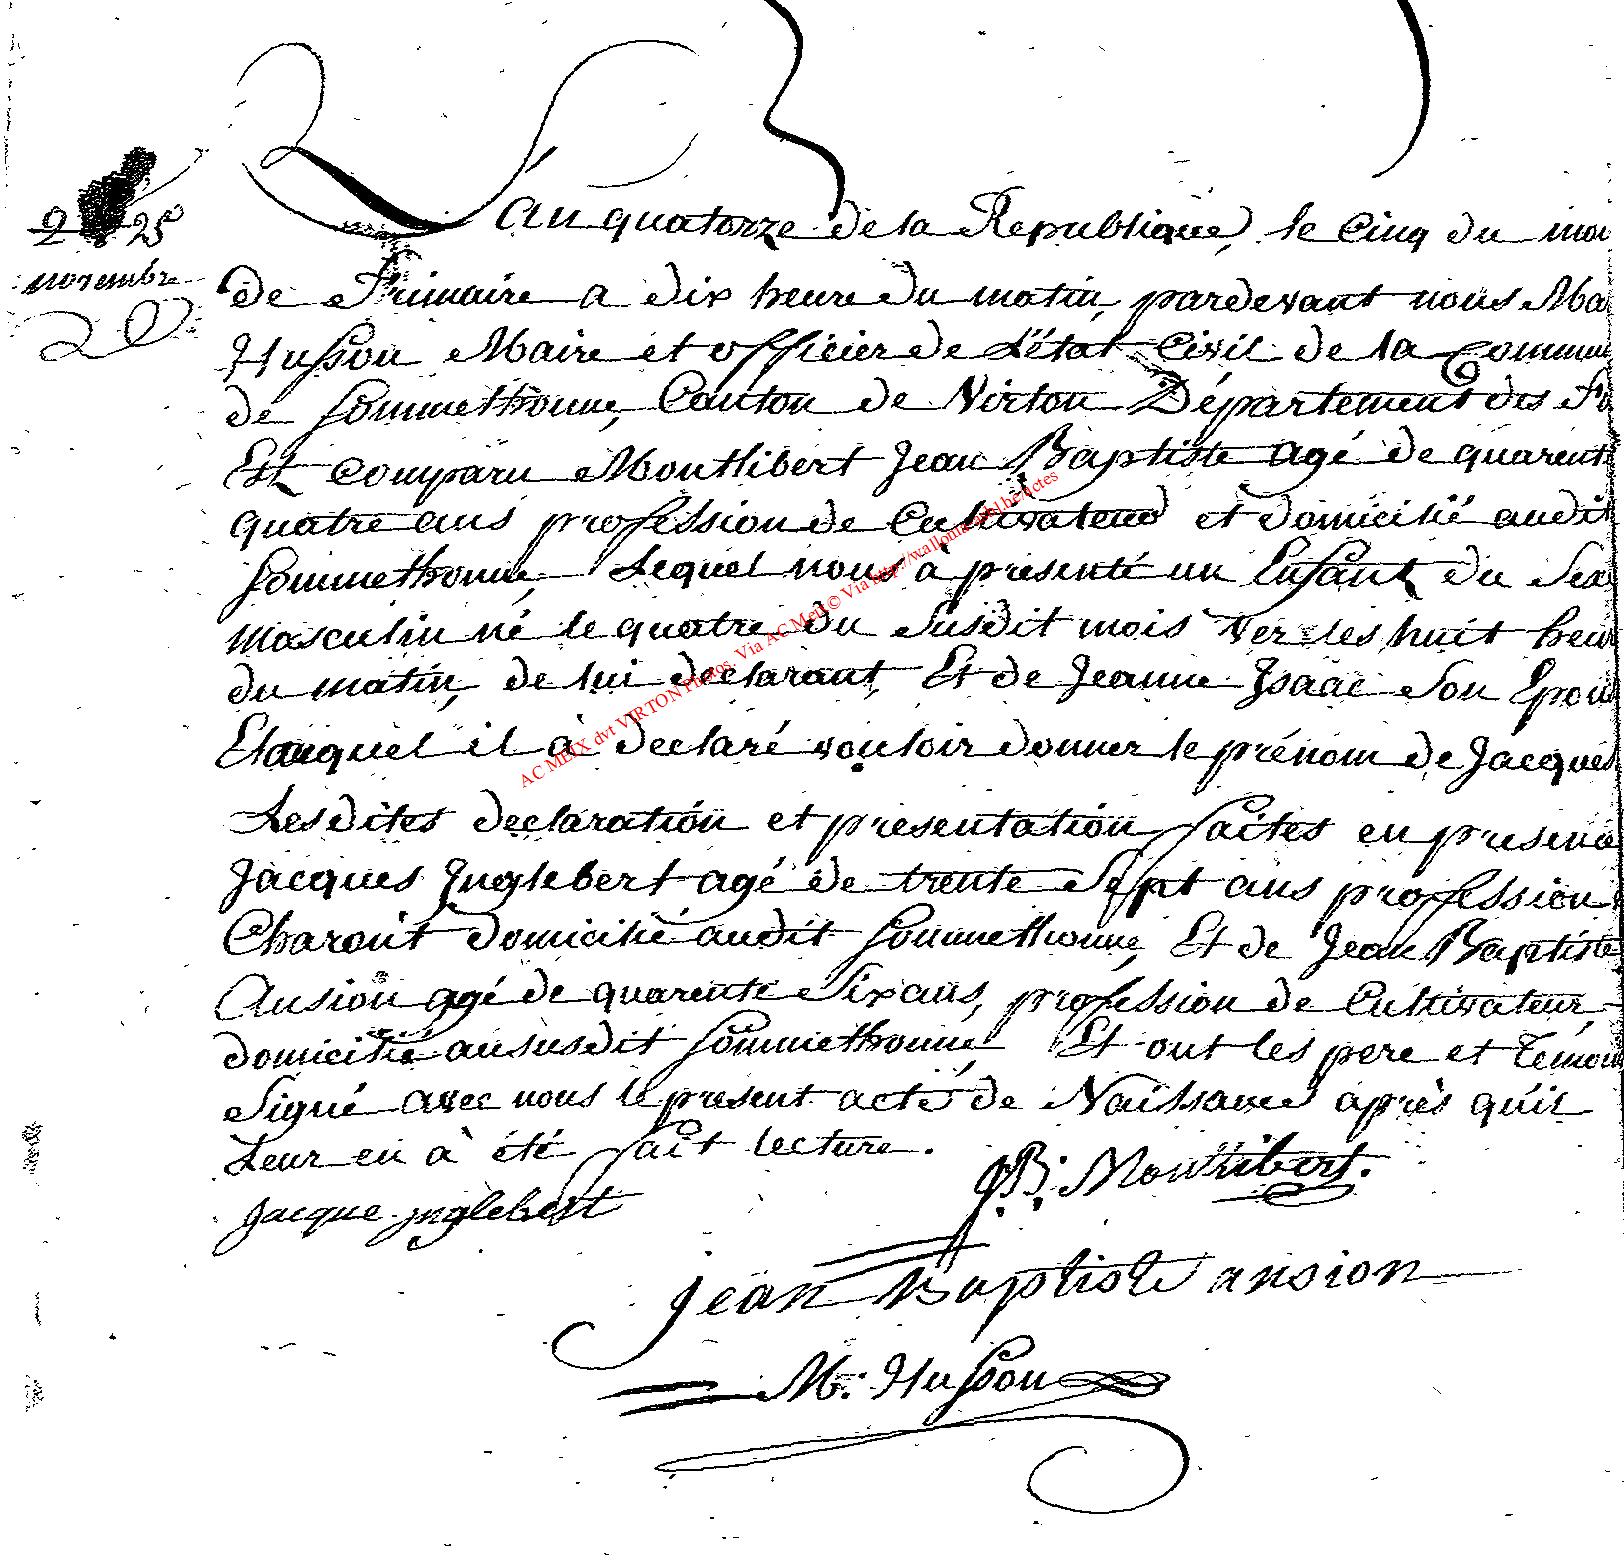 L'an quatorze de la Republique, le cinq du moi
2 25
novembre
de Frimaire a dix heure du matin, pardevant nous Ma
Husson Maire et officier de L'état Civil de la Commun
de Sommethonne, Canton de Virton Département des Fo
Est comparu Montlibert Jean Baptiste agé de quarent
quatre ans profession de Cultivateur et domicilié audit
Sommethonne, Lequel nous à presenté un Enfant du Sex
masculin né le quatre du susdit mois vers les huit heur
du matin, de lui declarant, Et de Jeanne Isaac son Epous
Et auquel il à declaré vouloir donner le prénom de Jacques
Lesdites declaration et presentation faites en presence
Jacques Inglebert agé de trente Sept ans profession
Charont domicilié audit Sommethonne, Et de Jean Baptiste
Ansion agé de quarente Six ans, profession de Cultivateur,
domicilié au susdit Sommethonne Et ont les pere et Témoin
Signé avec nous le present acte de Naissance après qu'il
Leur en à été fait lecture.
JB: Montlibert.
Jacque inglebert
jean Baptiste ansion
M: Husson
AC MEIX dvt VIRTON Photos. Via AC Meix © Via http://wallonica
actes